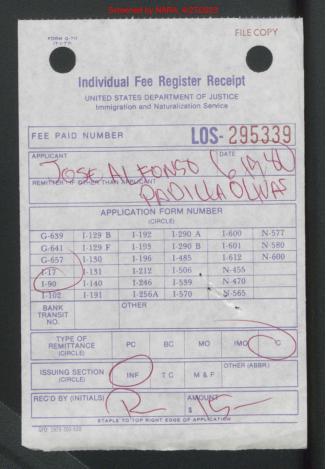 Screened by NARA, 4/27/2023
FILE COPY
FORM G-711
Individual Fee Register Receipt
UNITED STATES DEPARTMENT OF JUSTICE
Immigration and Naturalization Service
FEE PAID NUMBER LOS- 295339
APPLICANT DATE
JOSE ALFONSO
REMITTER IF OTHER THAN APPLICANT
PADILLA OLIVAS
APPLICATION FORM NUMBER
(CIRCLE)
G-639 I-129 B I-192 I-290 A I-600 N-577
G-641 I-129 F I-193 I-290 B I-601 N-580
G-657 I-130 I-196 I-485 I-612 N-600
I-17 I-131 I-212 I-506 N-455
I-90 I-140 I-246 I-539 N-470
I-102 I-191 I-256A I-570 N-565
BANK TRANSIT NO. OTHER
TYPE OF REMITTANCE (CIRCLE) PC BC MO IMO C
ISSUING SECTION (CIRCLE) INF T C M & F OTHER (ABBR.)
REC'D BY (INITIALS) R AMOUNT $ 15-
STAPLE TO TOP RIGHT EDGE OF APPLICATION